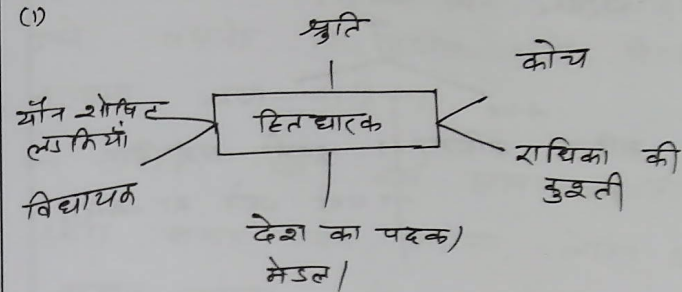 (1)
श्रुति
कोच
यौन शोषित
लडकियाँ
हितधारक
राधिका की
कुश्ती
विधायक
देश का पदक/
मेडल/